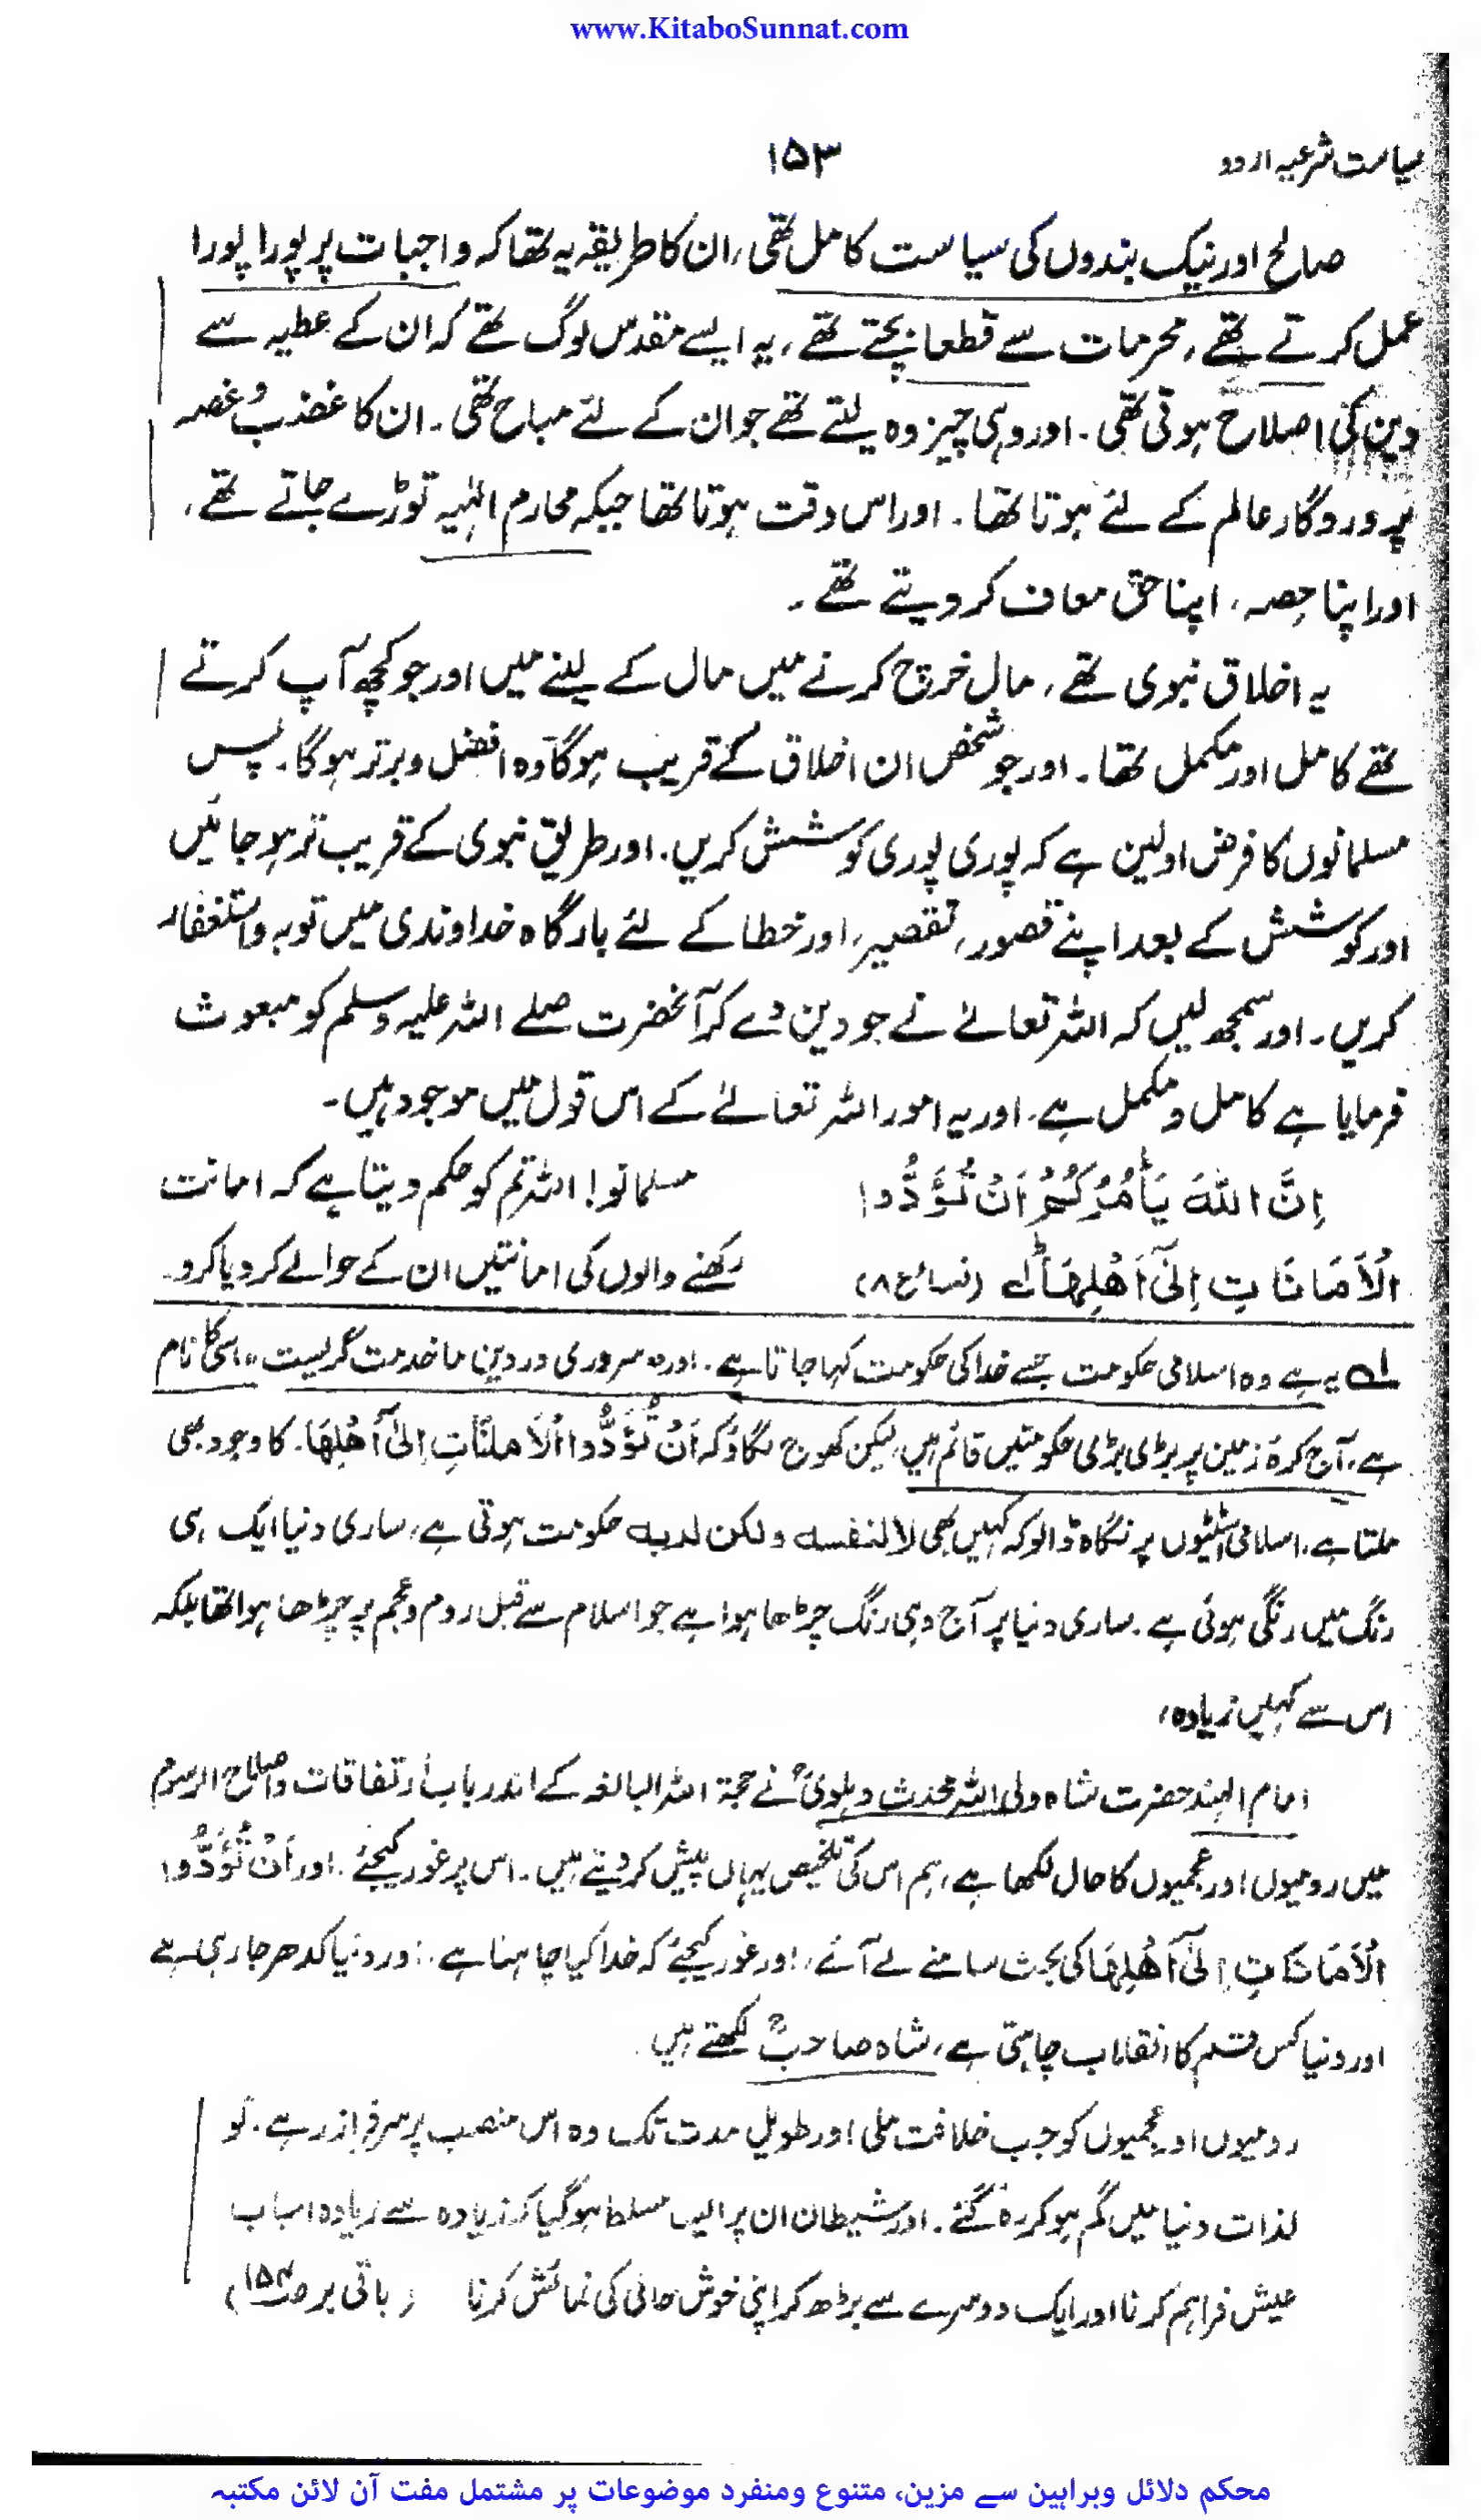 www.KitaboSunnat.com
سیاست شرعیہ اردو
۱۵۳
صالح اور نیک بندوں کی سیاست کامل تھی، ان کا طریقہ یہ تھا کہ واجبات پر پورا پورا
عمل کرتے تھے، محرمات سے قطعاً بچتے تھے، یہ ایسے مقدس لوگ تھے کہ ان کے عطیہ سے
دین کی اصلاح ہوتی تھی۔ اور وہی چیز وہ لیتے تھے جو ان کے لئے مباح تھی۔ ان کا غضب و غصہ
پروردگار عالم کے لئے ہوتا تھا۔ اور اس وقت ہوتا تھا جبکہ محارم الٰہیہ توڑے جاتے تھے،
اور اپنا حصہ، اپنا حق معاف کر دیتے تھے۔
یہ اخلاق نبوی تھے، مال خرچ کرنے میں مال کے لینے میں اور جو کچھ آپ کرتے
تھے کامل اور مکمل تھا۔ اور جو شخص ان اخلاق کے قریب ہوگا وہ افضل و برتر ہوگا۔ پس
مسلمانوں کا فرض اولین ہے کہ پوری پوری کوشش کریں۔ اور طریق نبوی کے قریب تر ہو جائیں
اور کوشش کے بعد اپنے قصور، تقصیر، اور خطا کے لئے بارگاہ خداوندی میں توبہ و استغفار
کریں۔ اور سمجھ لیں کہ اللہ تعالےٰ نے جو دین دے کر آنحضرت صلے اللہ علیہ وسلم کو مبعوث
فرمایا ہے کامل و مکمل ہے۔ اور یہ امور اللہ تعالےٰ کے اس قول میں موجود ہیں۔
اِنَّ اللّٰہَ یَأْمُرُکُمْ اَنْ تُؤَدُّوا
الْاَمَانَاتِ اِلیٰٓ اَھْلِھَا لہ (نساء ع ۸)
مسلمانو! اللہ تم کو حکم دیتا ہے کہ امانت
رکھنے والوں کی امانتیں ان کے حوالے کر دیا کرو۔
لہ یہ ہے وہ اسلامی حکومت جسے خدا کی حکومت کہا جاتا ہے۔ اور "سروری در دین ما خدمت گریست" اسی کا نام
ہے، آج کرۂ زمین پر بڑی بڑی حکومتیں قائم ہیں، لیکن کھوج لگاؤ کہ اَنْ تُؤَدُّوا الْاَمٰنٰتِ اِلیٰٓ اَھْلِھَا۔ کا وجود بھی
ملتا ہے۔ اسلامی اسٹیٹوں پر نگاہ ڈالو کہ کہیں بھی لا لنفسه ولکن لدبه حکومت ہوتی ہے، ساری دنیا ایک ہی
رنگ میں رنگی ہوئی ہے۔ ساری دنیا پر آج وہی رنگ چڑھا ہوا ہے جو اسلام سے قبل روم و عجم پر چڑھا ہوا تھا بلکہ
اس سے کہیں زیادہ،
امام الہند حضرت شاہ ولی اللہ محدث دہلویؒ نے حجۃ اللہ البالغہ کے اندر باب ارتفاقات و اصلاح الرسوم
میں رومیوں اور عجمیوں کا حال لکھا ہے، ہم اس کی تلخیص یہاں پیش کر دیتے ہیں۔ اس پر غور کیجئے۔ اور اَنْ تُؤَدُّوا
الْاَمَانَاتِ اِلیٰٓ اَھْلِھَا کی بحث سامنے لے آئے، اور غور کیجئے کہ خدا کیا چاہتا ہے۔ اور دنیا کدھر جا رہی ہے
اور دنیا کس قسم کا انقلاب چاہتی ہے، شاہ صاحبؒ لکھتے ہیں۔
رومیوں اور عجمیوں کو جب خلافت ملی اور طویل مدت تک وہ اس منصب پر سرفراز رہے۔ تو
لذات دنیا میں گم ہو کر رہ گئے۔ اور شیطان ان پر ایسا مسلط ہوگیا کہ زیادہ سے زیادہ اسباب
عیش فراہم کرنا اور ایک دوسرے سے بڑھ کر اپنی خوش حالی کی نمائش کرنا (باقی بر صـ۱۵۴)
محکم دلائل وبراہین سے مزین، متنوع ومنفرد موضوعات پر مشتمل مفت آن لائن مکتبہ